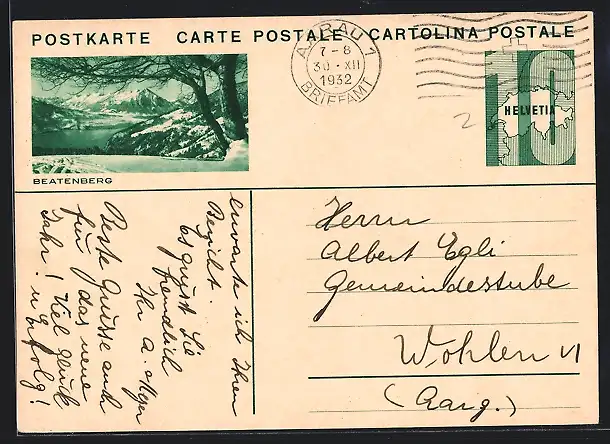 POSTKARTE CARTE POSTALE CARTOLINA POSTALE
AARAU 1
7-8
30.XII
1932
BRIEFAMT
10
HELVETIA
2
BEATENBERG
erwarte ich Ihren
Bericht.
Es grüsst Sie
freundlich
Ihr A. Meyer
Beste Grüsse auch
für das neue
Jahr! Viel Glück
u. Erfolg!
Herrn
Albert Egli
Gemeindestube
Wohlen
(Aarg.)